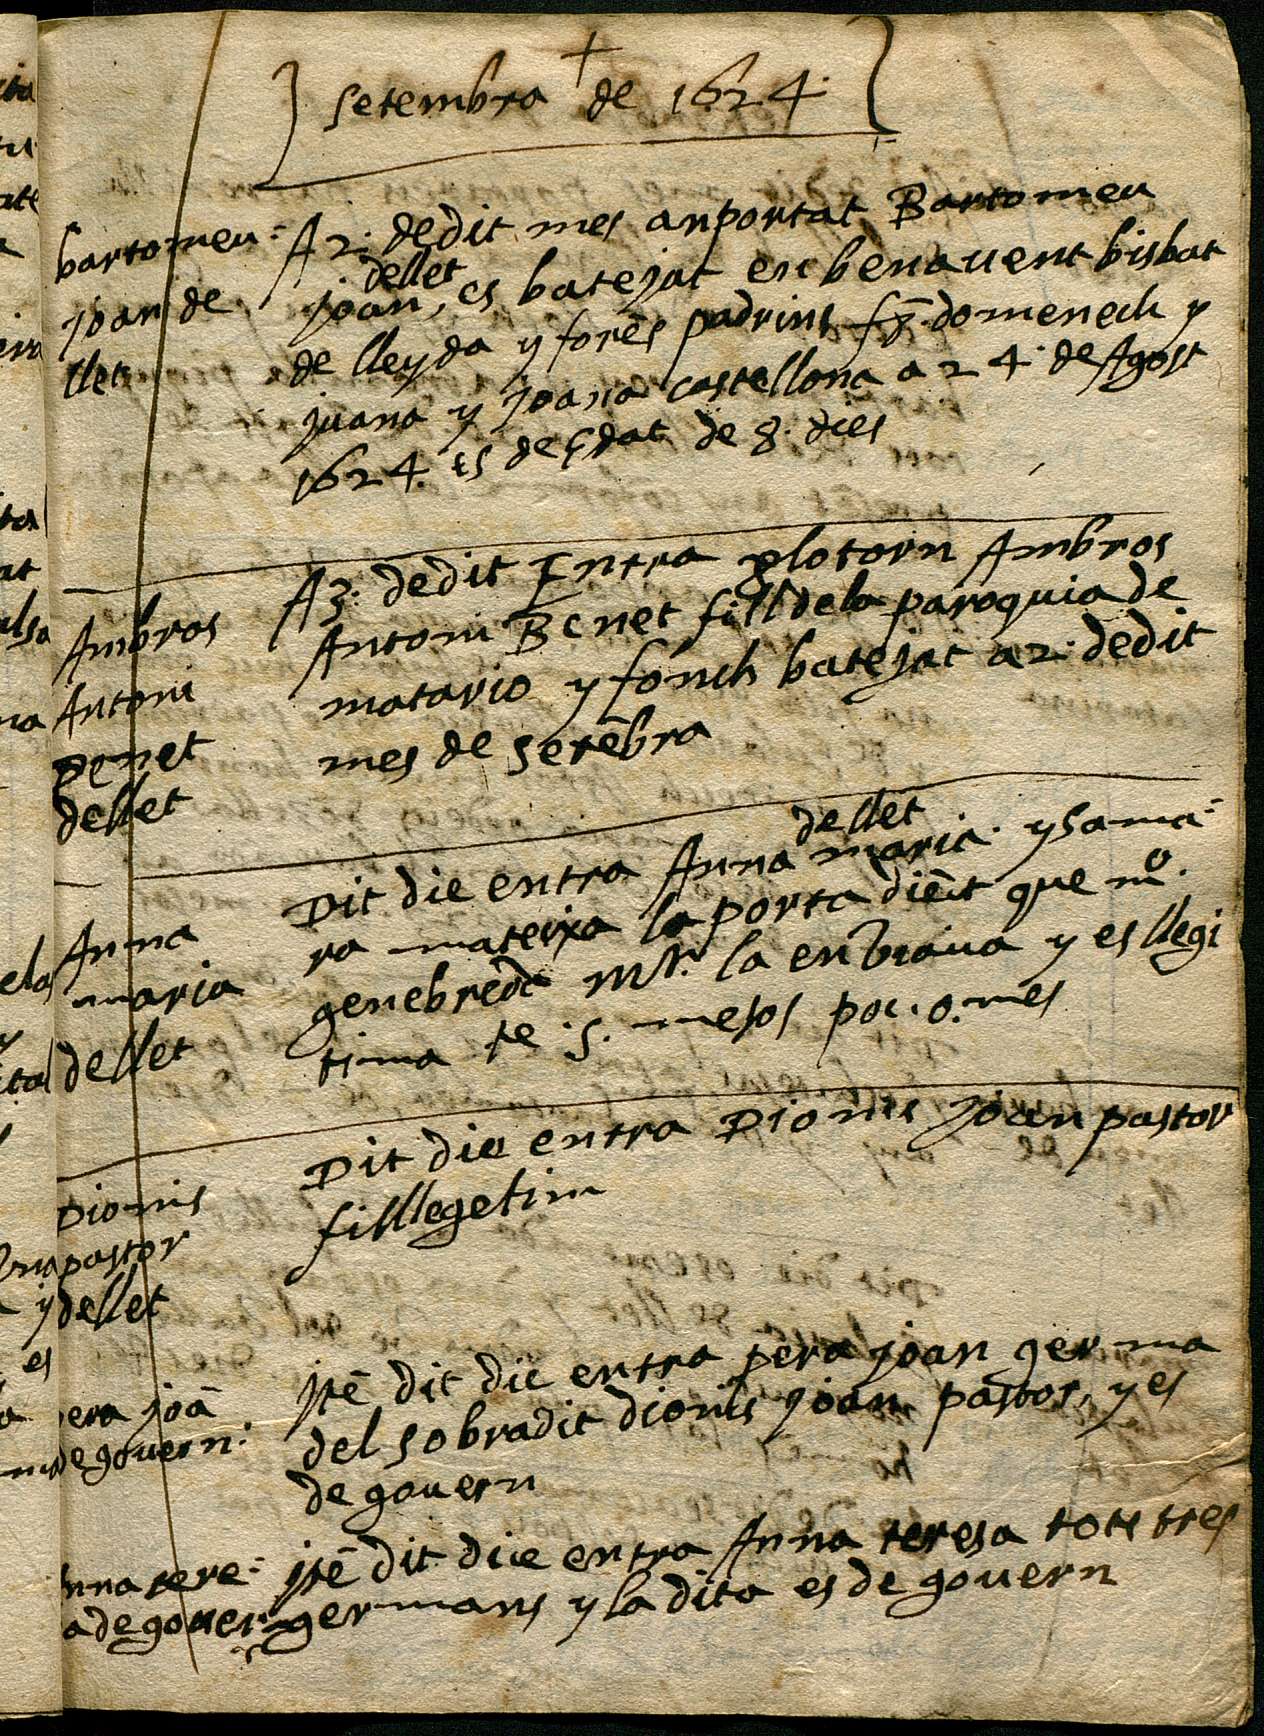 +
Setembra de 1624
bartomeu=
joan de
llet
A 2. dedit mes anportat Bartomeu
dellet
joan, es batejat en benavent bisbat
de lleyda y forēs padrins fr̄. domenech y
juana y joana castellona a 24 de Agost
1624. es de edat de 8. dies
Ambros
Antoni
Benet
dellet
A 3. dedit Entra plotorn Ambros
Antoni Benet fill dela paroquia de
mataro y fonch batejat a 2. dedit
mes de setēbra
Anna
maria
dellet
dellet
Dit die entra Anna maria y sa ma=
ra mateixa la porta diēt que mº.
genebreda mr. la enviava y es llegi
tima te .5. mesos poc. o. mes
Dionis
pastor
dellet
Dit die entra Dionis joan pastor
fill llegetim
pera joā
de govern.
jtē dit die entra pera joan ger ma
del sobradit dionis joan pastor, y es
de govern
Anna tere=
a de govern
jtē dit die entra Anna teresa tots tres
germans y la dita es de govern